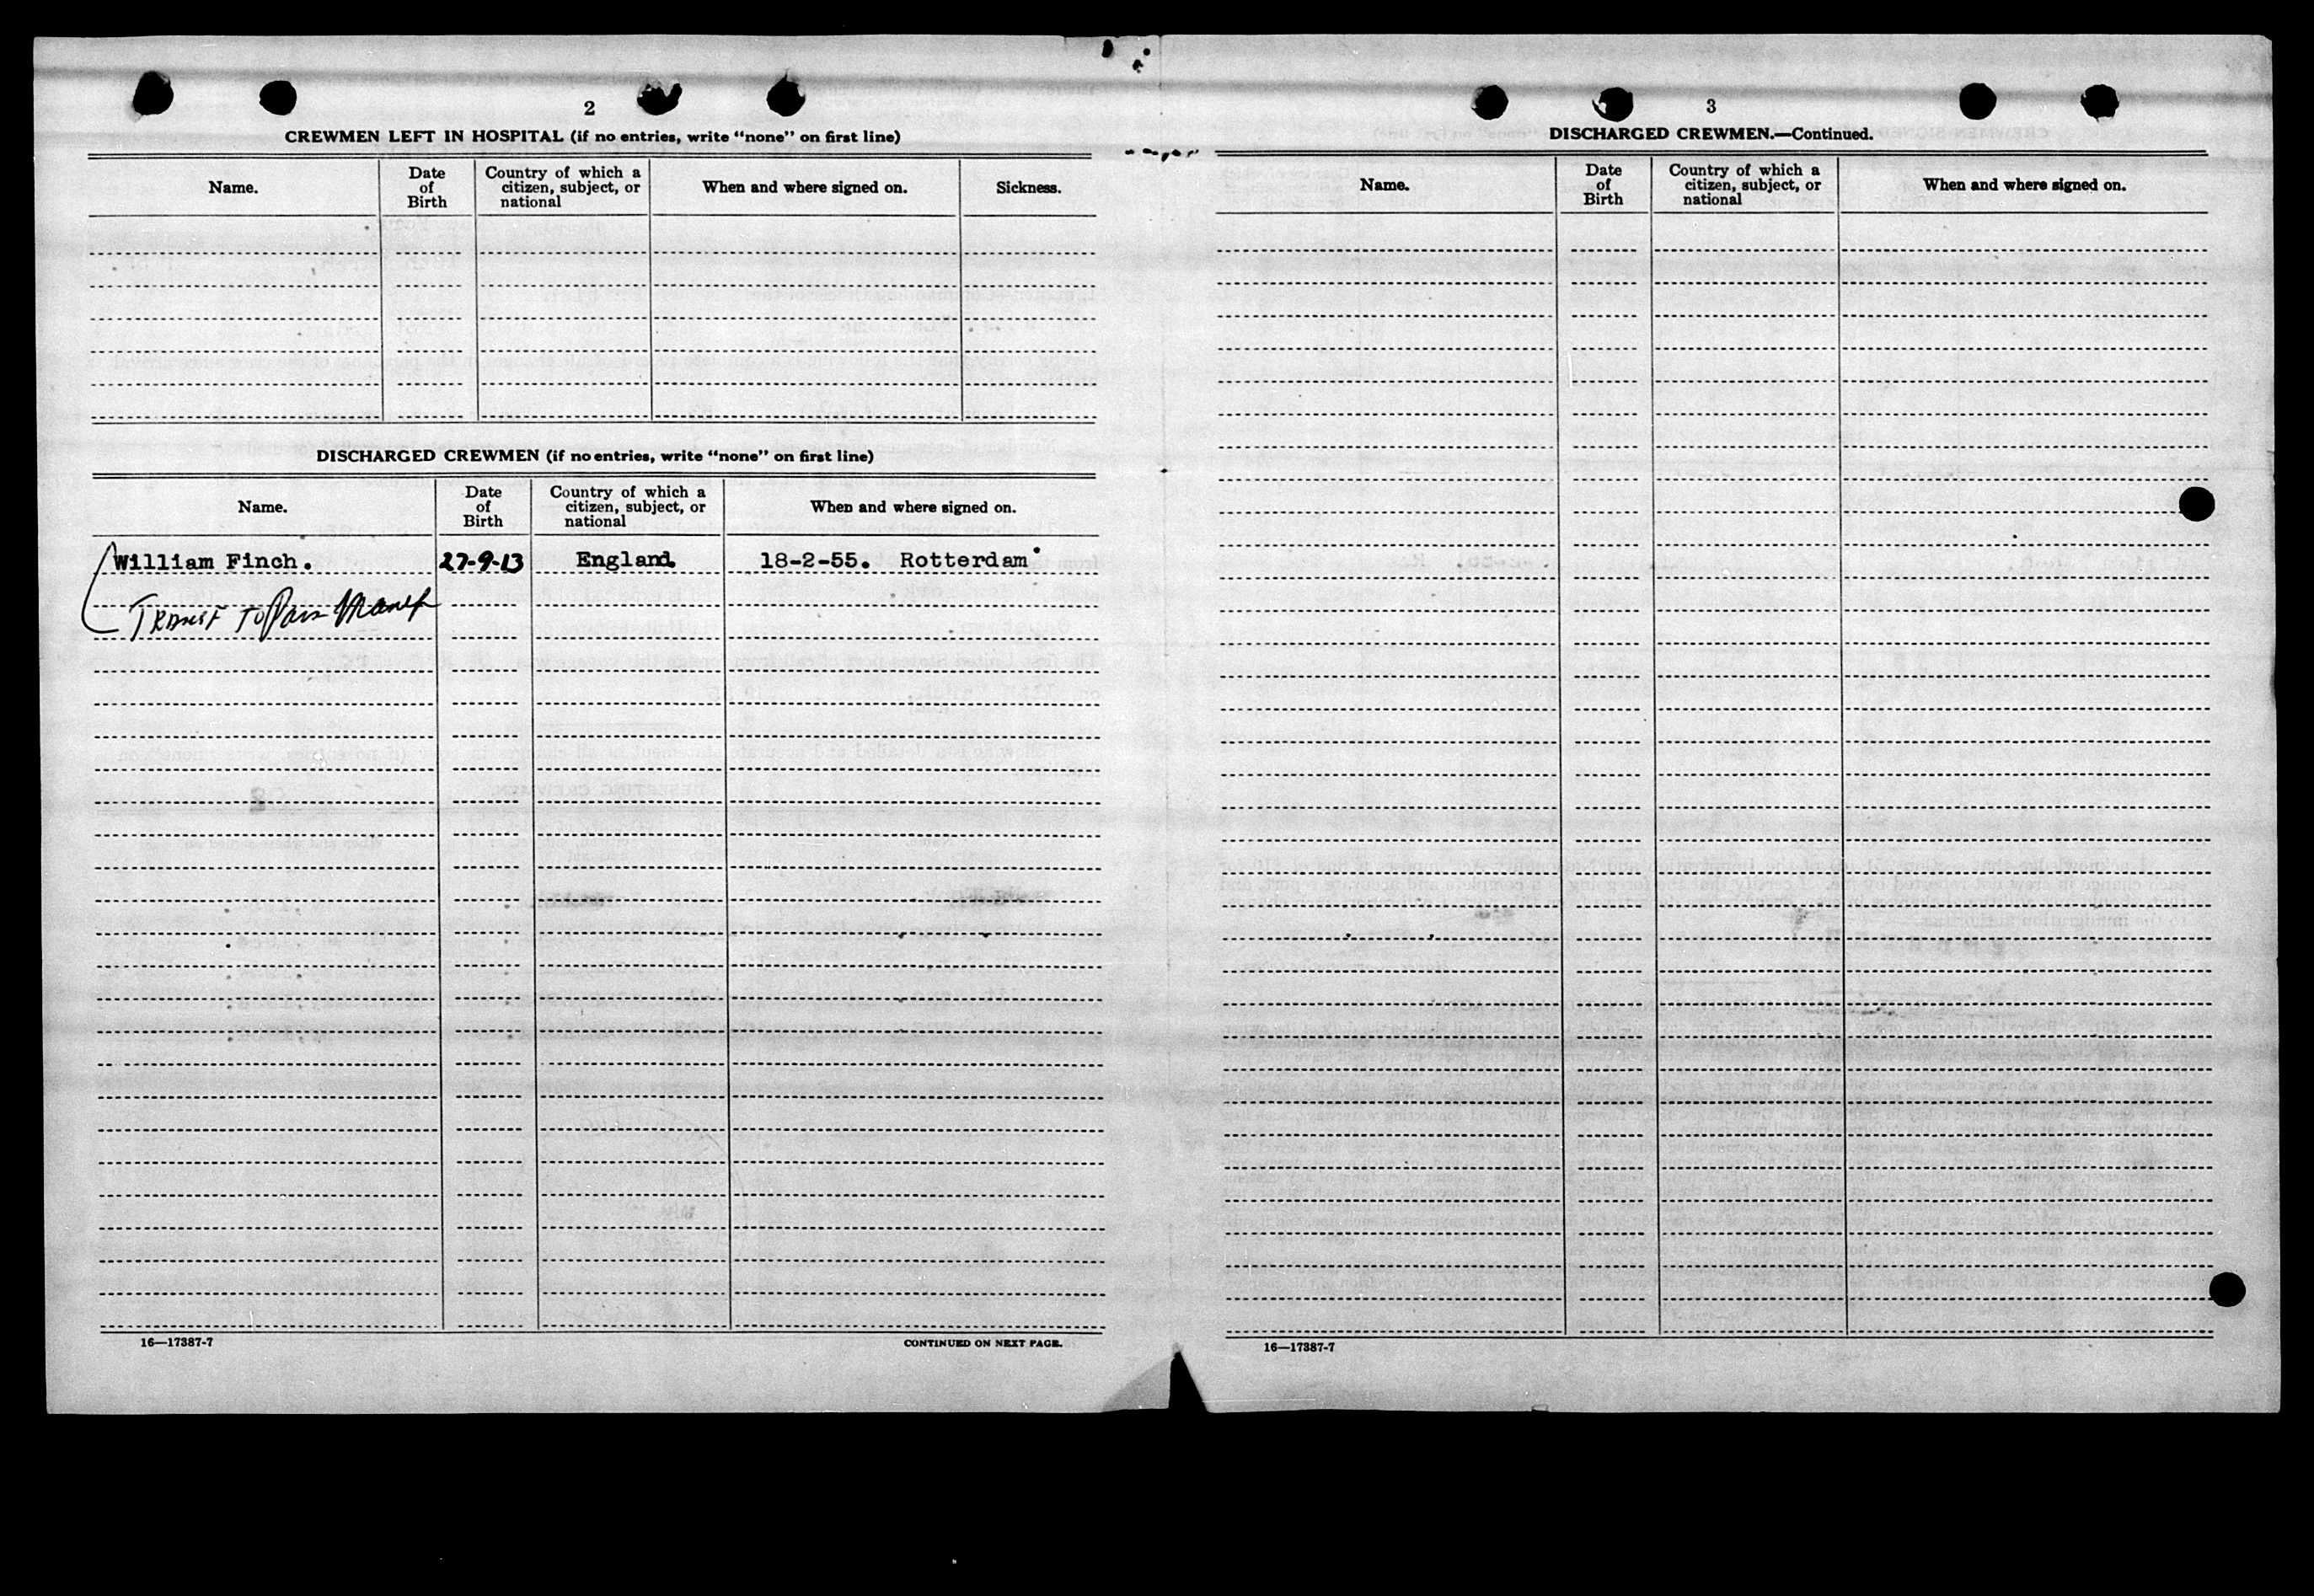 2
CREWMEN LEFT IN HOSPITAL (if no entries, write "none" on first line)
Name.
Date of Birth
Country of which a citizen, subject, or national
When and where signed on.
Sickness.
DISCHARGED CREWMEN (if no entries, write "none" on first line)
Name.
Date of Birth
Country of which a citizen, subject, or national
When and where signed on.
William Finch. 27-9-13 England. 18-2-55. Rotterdam
TRANSF TO Pass Manif
16—17387-7
CONTINUED ON NEXT PAGE.
3
DISCHARGED CREWMEN.—Continued.
Name.
Date of Birth
Country of which a citizen, subject, or national
When and where signed on.
16—17387-7